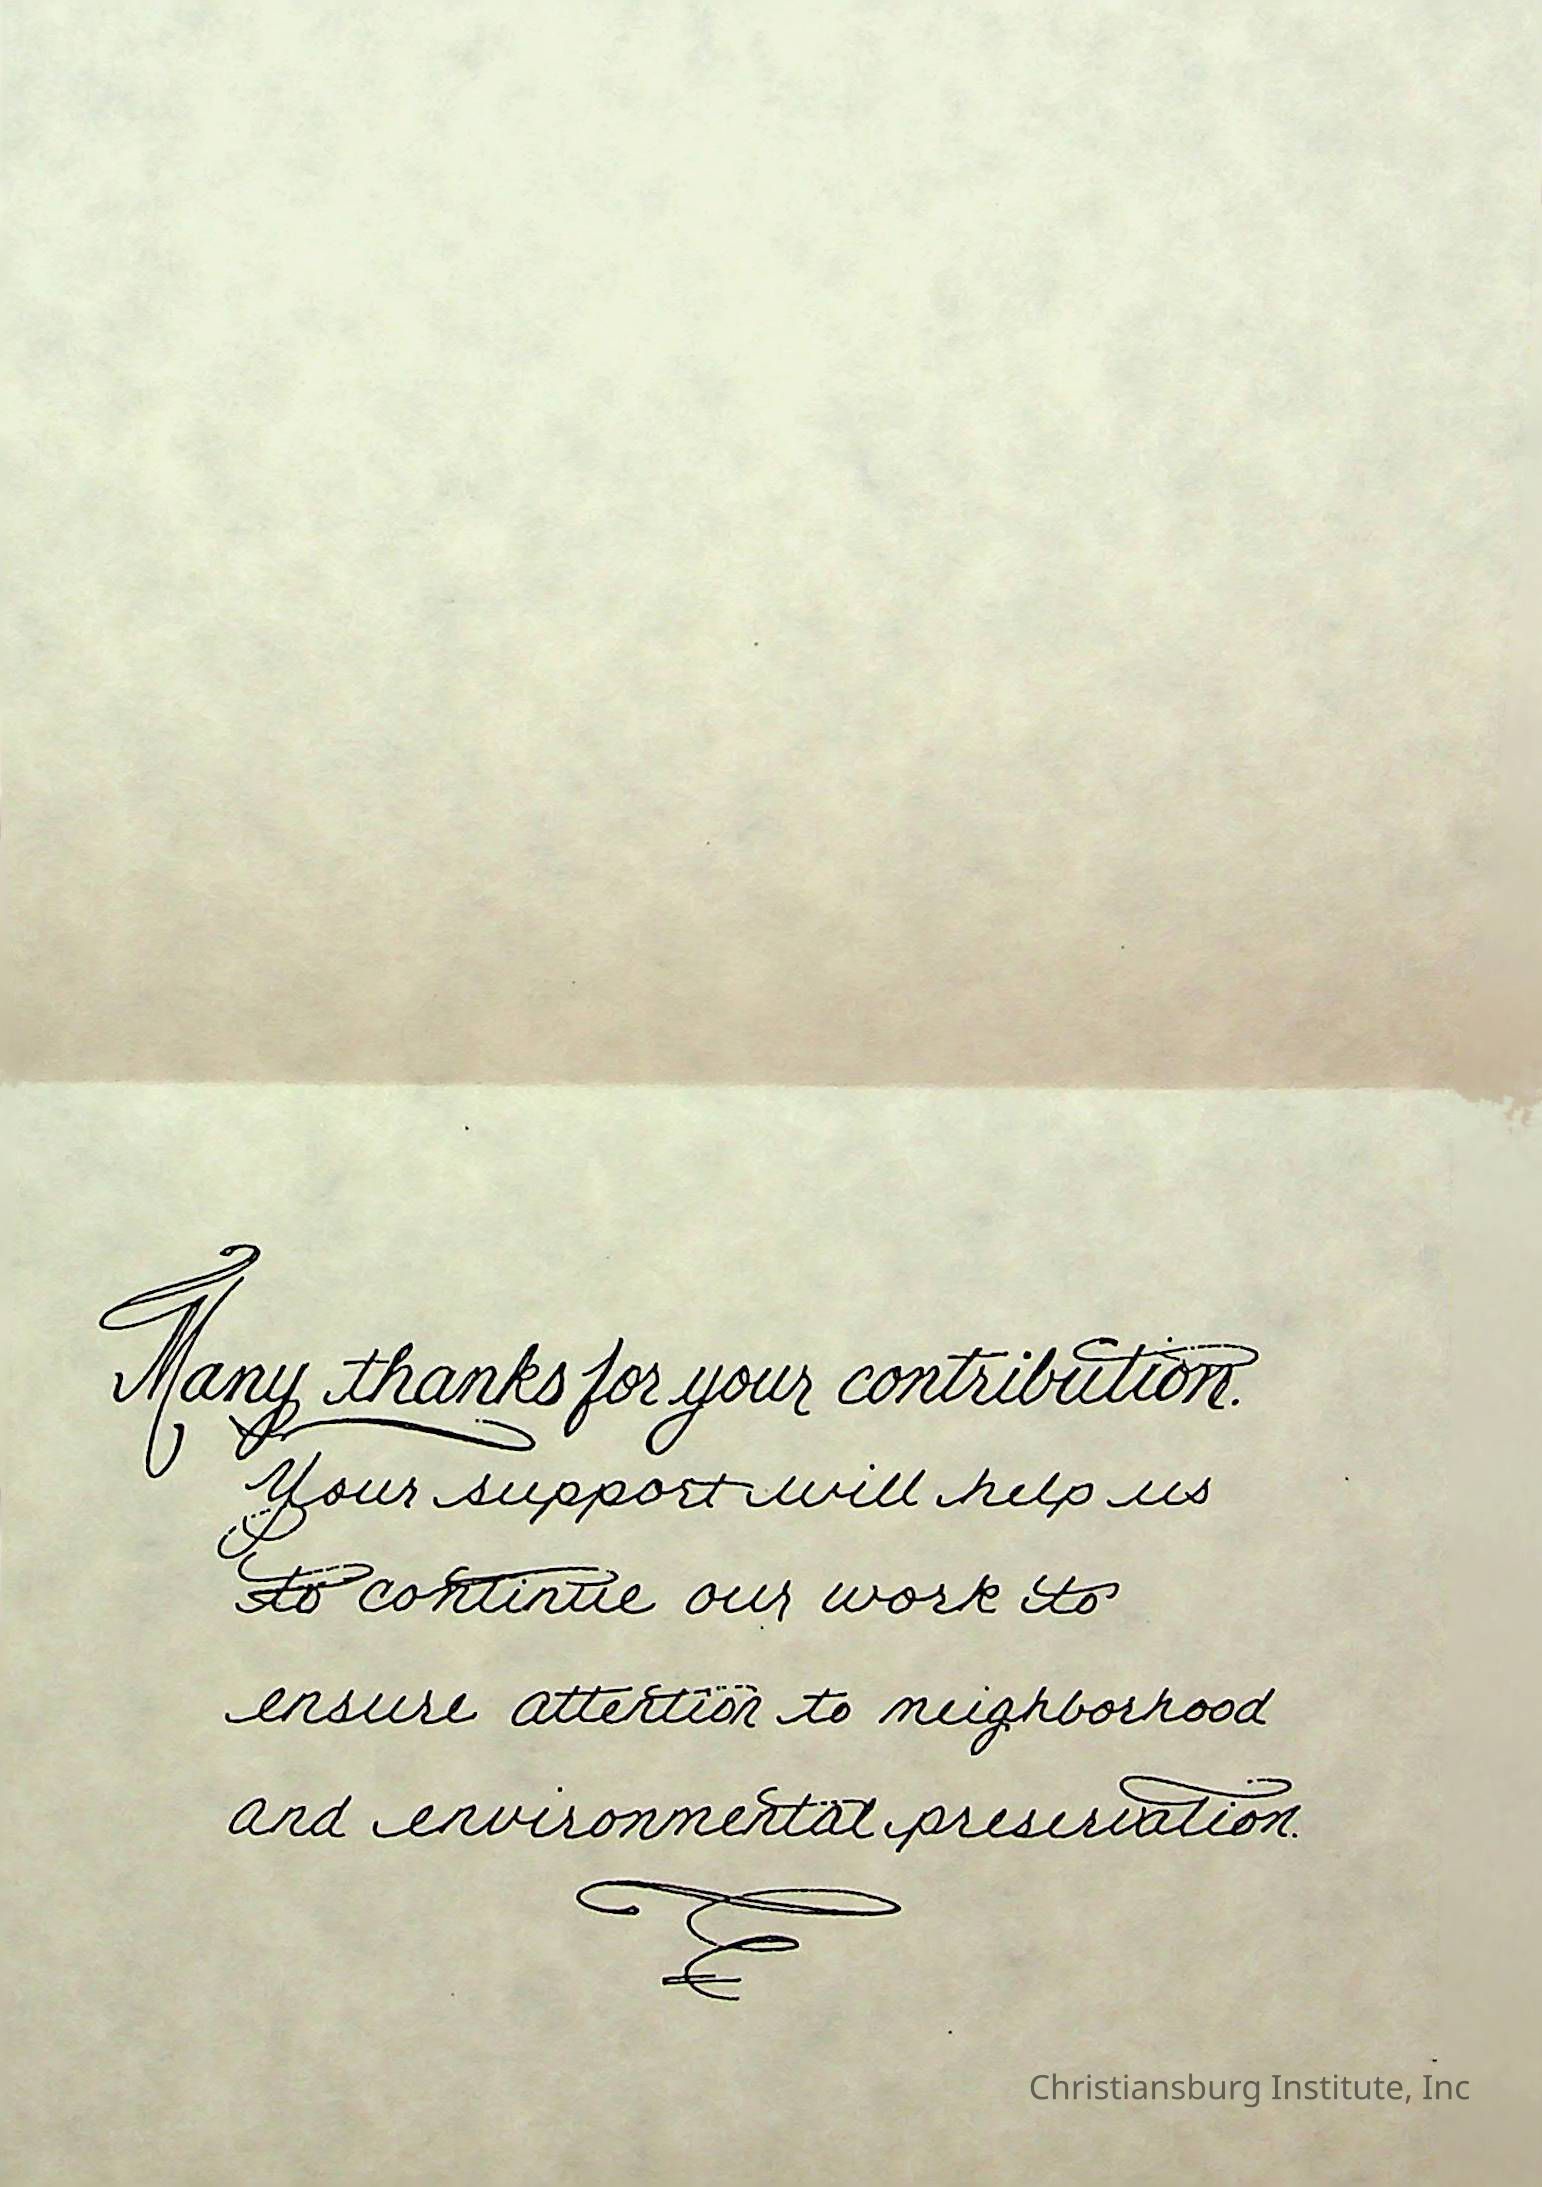 Many thanks for your contribution.
Your support will help us
to continue our work to
ensure attention to neighborhood
and environmental preservation.
Christiansburg Institute, Inc